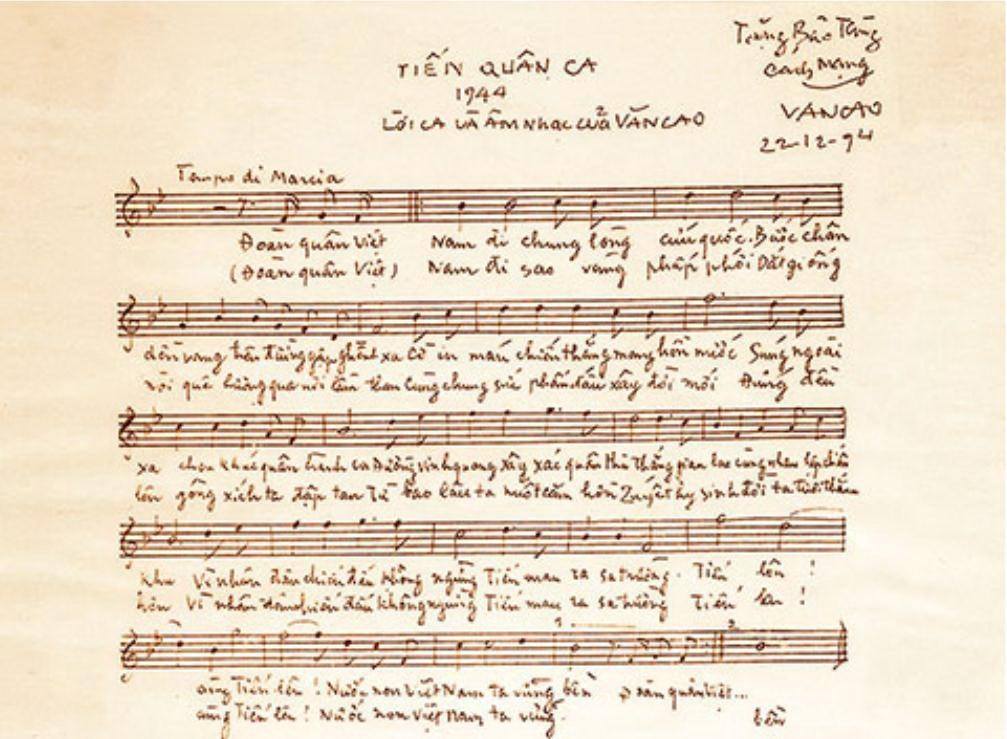 Tặng Bảo Tàng
Cách Mạng
VANCAO
22-12-94
TIẾN QUÂN CA
1944
LỜI CA VÀ ÂM NHẠC CỦA VĂN CAO
Tempo di Marcia
Đoàn quân Việt Nam đi chung lòng cứu quốc. Bước chân
(Đoàn quân Việt) Nam đi sao vàng phấp phới Dắt giống
dồn vang trên đường gập ghềnh xa Cờ in máu chiến thắng mang hồn nước Súng ngoài
nòi quê hương qua nơi lầm than Cùng chung sức phấn đấu xây đời mới Đứng đều
xa chen khúc quân hành ca Đường vinh quang xây xác quân thù Thắng gian lao cùng nhau lập chiến
lên gông xích ta đập tan Từ bao lâu ta nuốt căm hờn Quyết hy sinh đời ta tươi thắm
khu Vì nhân dân chiến đấu không ngừng Tiến mau ra sa trường. Tiến lên !
hơn Vì nhân dân chiến đấu không ngừng Tiến mau ra sa trường Tiến lên !
cùng Tiến lên ! Nước non Việt Nam ta vững bền Đoàn quân Việt...
cùng Tiến lên ! Nước non Việt Nam ta vững. bền